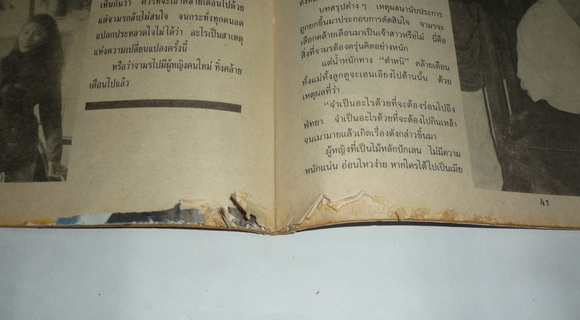 เห็นกันว่า ควรที่จะเอาคล้ายเดือนไปด้วย
แต่จามรกลับไม่สนใจ จนกระทั่งทุกคนอด
แปลกประหลาดใจไม่ได้ว่า อะไรเป็นสาเหตุ
แห่งความเปลี่ยนแปลงครั้งนี้
หรือว่าจามรไปมีผู้หญิงคนใหม่ ทิ้งคล้าย
เดือนไปแล้ว
บทสรุปต่าง ๆ เหตุผลนานัปประการ
ถูกยกขึ้นมาประกอบการตัดสินใจ จามรจะ
เลือกคล้ายเดือนมาเป็นเจ้าสาวหรือไม่ นี่คือ
สิ่งที่จามรต้องครุ่นคิดอย่างหนัก
แต่น้ำหนักทาง "ตำหนิ" คล้ายเดือน
ทั้งแม่ทั้งลูกดูจะเอนเอียงไปด้านนั้น ด้วย
เหตุผลที่ว่า
"จำเป็นอะไรด้วยที่จะต้องร่อนไปถึง
พัทยา จำเป็นอะไรด้วยที่จะต้องไปกินเหล้า
จนเมามายแล้วเกิดเรื่องดังกล่าวขึ้นมา
ผู้หญิงที่เป็นไม้หลักปักเลน ไม่มีความ
หนักแน่น อ่อนไหวง่าย หากใครได้ไปเป็นเมีย
41